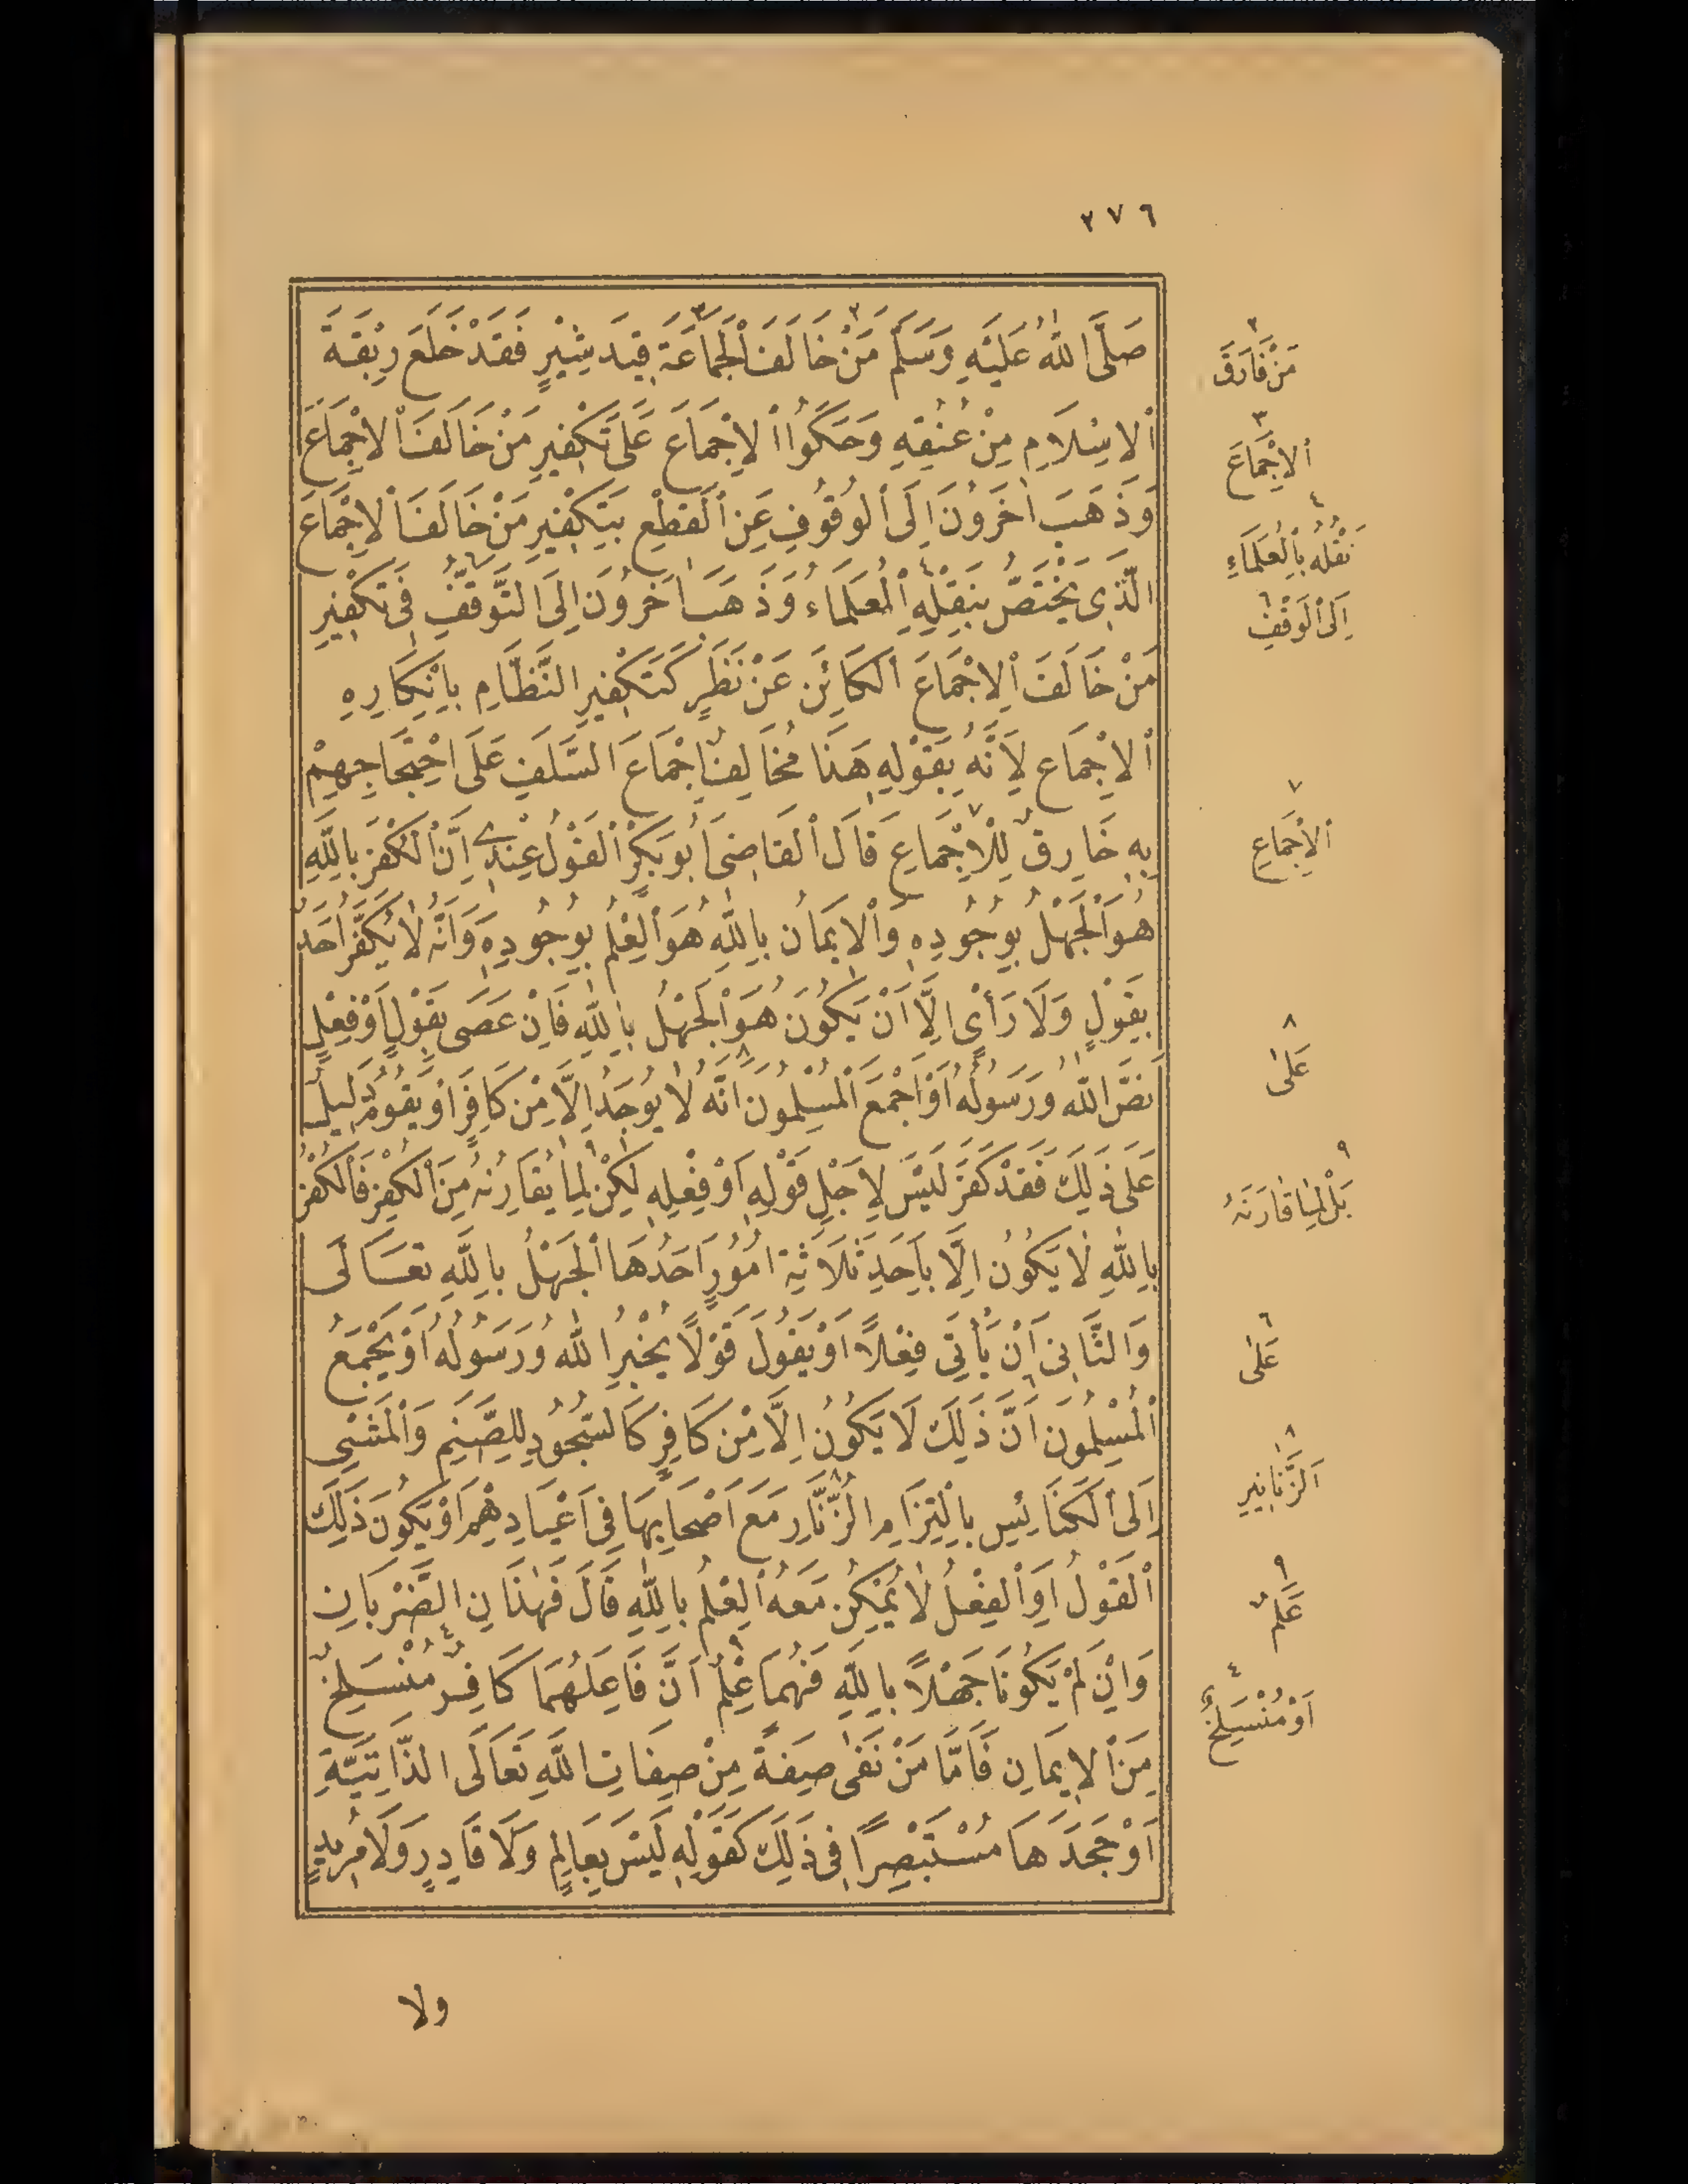 ٢٧٦
صَلَّى اللهُ عَلَيْهِ وَسَلَّمَ مَنْ خَالَفَ الْجَمَاعَةَ قِيدَ شِبْرٍ فَقَدْ خَلَعَ رِبْقَةَ
الْإِسْلَامِ مِنْ عُنُقِهِ وَحَكَوُا الْإِجْمَاعَ عَلَى تَكْفِيرِ مَنْ خَالَفَ الْإِجْمَاعَ
وَذَهَبَ آخَرُونَ إِلَى الْوُقُوفِ عَنِ الْقَطْعِ بِتَكْفِيرِ مَنْ خَالَفَ الْإِجْمَاعَ
الَّذِي يَخْتَصُّ بِنَقْلِهِ الْعُلَمَاءُ وَذَهَبَ آخَرُونَ إِلَى التَّوَقُّفِ فِي تَكْفِيرِ
مَنْ خَالَفَ الْإِجْمَاعَ الْكَائِنَ عَنْ نَظَرٍ كَتَكْفِيرِ النَّظَّامِ بِإِنْكَارِهِ
الْإِجْمَاعَ لِأَنَّهُ بِقَوْلِهِ هَذَا مُخَالِفٌ إِجْمَاعَ السَّلَفِ عَلَى احْتِجَاجِهِمْ
بِهِ خَارِقٌ لِلْإِجْمَاعِ قَالَ الْقَاضِي أَبُو بَكْرٍ الْقَوْلُ عِنْدِي إِنَّ الْكُفْرَ بِاللَّهِ
هُوَ الْجَهْلُ بِوُجُودِهِ وَالْإِيمَانُ بِاللَّهِ هُوَ الْعِلْمُ بِوُجُودِهِ وَأَنَّهُ لَا يُكَفَّرُ أَحَدٌ
بِقَوْلٍ وَلَا رَأْيٍ إِلَّا أَنْ يَكُونَ هُوَ الْجَهْلُ بِاللَّهِ فَإِنْ عَصَى بِقَوْلٍ أَوْ فِعْلٍ
نَصَّ اللهُ وَرَسُولُهُ أَوْ أَجْمَعَ الْمُسْلِمُونَ أَنَّهُ لَا يُوجَدُ إِلَّا مِنْ كَافِرٍ أَوْ يَقُومُ دَلِيلٌ
عَلَى ذَلِكَ فَقَدْ كَفَرَ لَيْسَ لِأَجْلِ قَوْلِهِ أَوْ فِعْلِهِ لَكِنْ لِمَا يُقَارِنُهُ مِنَ الْكُفْرِ فَالْكُفْرُ
بِاللَّهِ لَا يَكُونُ إِلَّا بِأَحَدِ ثَلَاثَةِ أُمُورٍ أَحَدُهَا الْجَهْلُ بِاللَّهِ تَعَالَى
وَالثَّانِي أَنْ يَأْتِيَ فِعْلًا أَوْ يَقُولَ قَوْلًا يُخْبِرُ اللهُ وَرَسُولُهُ أَوْ يُجْمِعُ
الْمُسْلِمُونَ أَنَّ ذَلِكَ لَا يَكُونُ إِلَّا مِنْ كَافِرٍ كَالسُّجُودِ لِلصَّنَمِ وَالْمَشْيِ
إِلَى الْكَنَائِسِ بِالْتِزَامِ الزُّنَّارِ مَعَ أَصْحَابِهَا فِي أَعْيَادِهِمْ أَوْ يَكُونَ ذَلِكَ
الْقَوْلُ أَوِ الْفِعْلُ لَا يُمْكِنُ مَعَهُ الْعِلْمُ بِاللَّهِ قَالَ فَهَذَانِ الضَّرْبَانِ
وَإِنْ لَمْ يَكُونَا جَهْلًا بِاللَّهِ فَهُمَا عِلْمٌ أَنَّ فَاعِلَهُمَا كَافِرٌ مُنْسَلِخٌ
مِنَ الْإِيمَانِ فَأَمَّا مَنْ نَفَى صِفَةً مِنْ صِفَاتِ اللَّهِ تَعَالَى الذَّاتِيَّةِ
أَوْ جَحَدَهَا مُسْتَبْصِرًا فِي ذَلِكَ كَقَوْلِهِ لَيْسَ بِعَالِمٍ وَلَا قَادِرٍ وَلَا مُرِيدٍ
ولا
٢
مَنْ فَارَقَ
٣
الْإِجْمَاعَ
٤
نَقْلُهُ بِالْعُلَمَاءِ
٦
إِلَى الْوَقْفِ
٧
الْإِجْمَاعِ
٨
عَلَى
٩
بَلْ لِمَا قَارَنَهُ
٦
عَلَى
٨
الزَّنَانِيرِ
٩
عَلَمٌ
٤
أَوْ مُنْسَلِخٌ